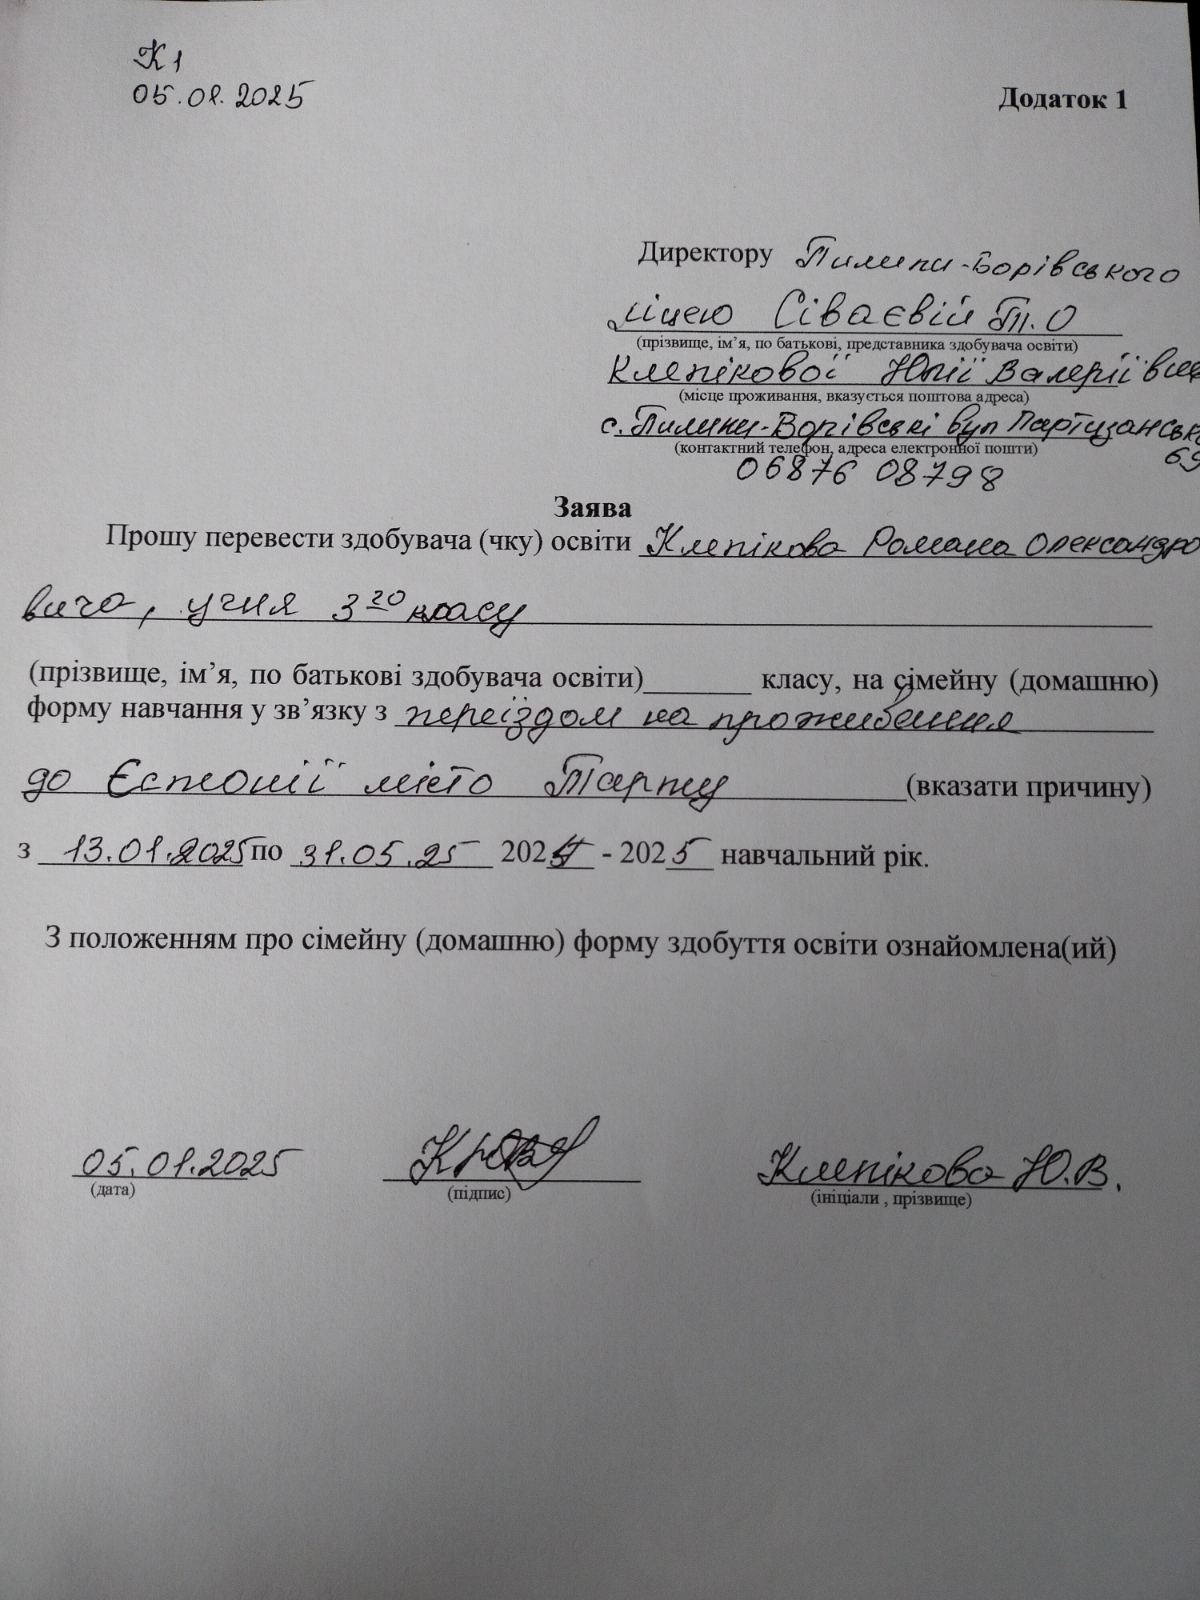 К1
05.01.2025
Додаток 1
Директору Пилипи-Борівського
ліцею Сіваєвій Т.О
(прізвище, ім’я, по батькові, представника здобувача освіти)
Клепікової Юлії Валеріївни
(місце проживання, вказується поштова адреса)
с. Пилипи-Борівські вул Партизанська
69
(контактний телефон, адреса електронної пошти)
06876 08798
Заява
Прошу перевести здобувача (чку) освіти Клепікова Романа Олександро
вича, учня 3го класу
(прізвище, ім’я, по батькові здобувача освіти)_______ класу, на сімейну (домашню)
форму навчання у зв’язку з переїздом на проживання
до Єстонії місто Тарту (вказати причину)
з 13.01.2025 по 31.05.25 2024 - 2025 навчальний рік.
З положенням про сімейну (домашню) форму здобуття освіти ознайомлена(ий)
05.01.2025 Клепікова Ю.В.
(дата) (підпис) (ініціали , прізвище)